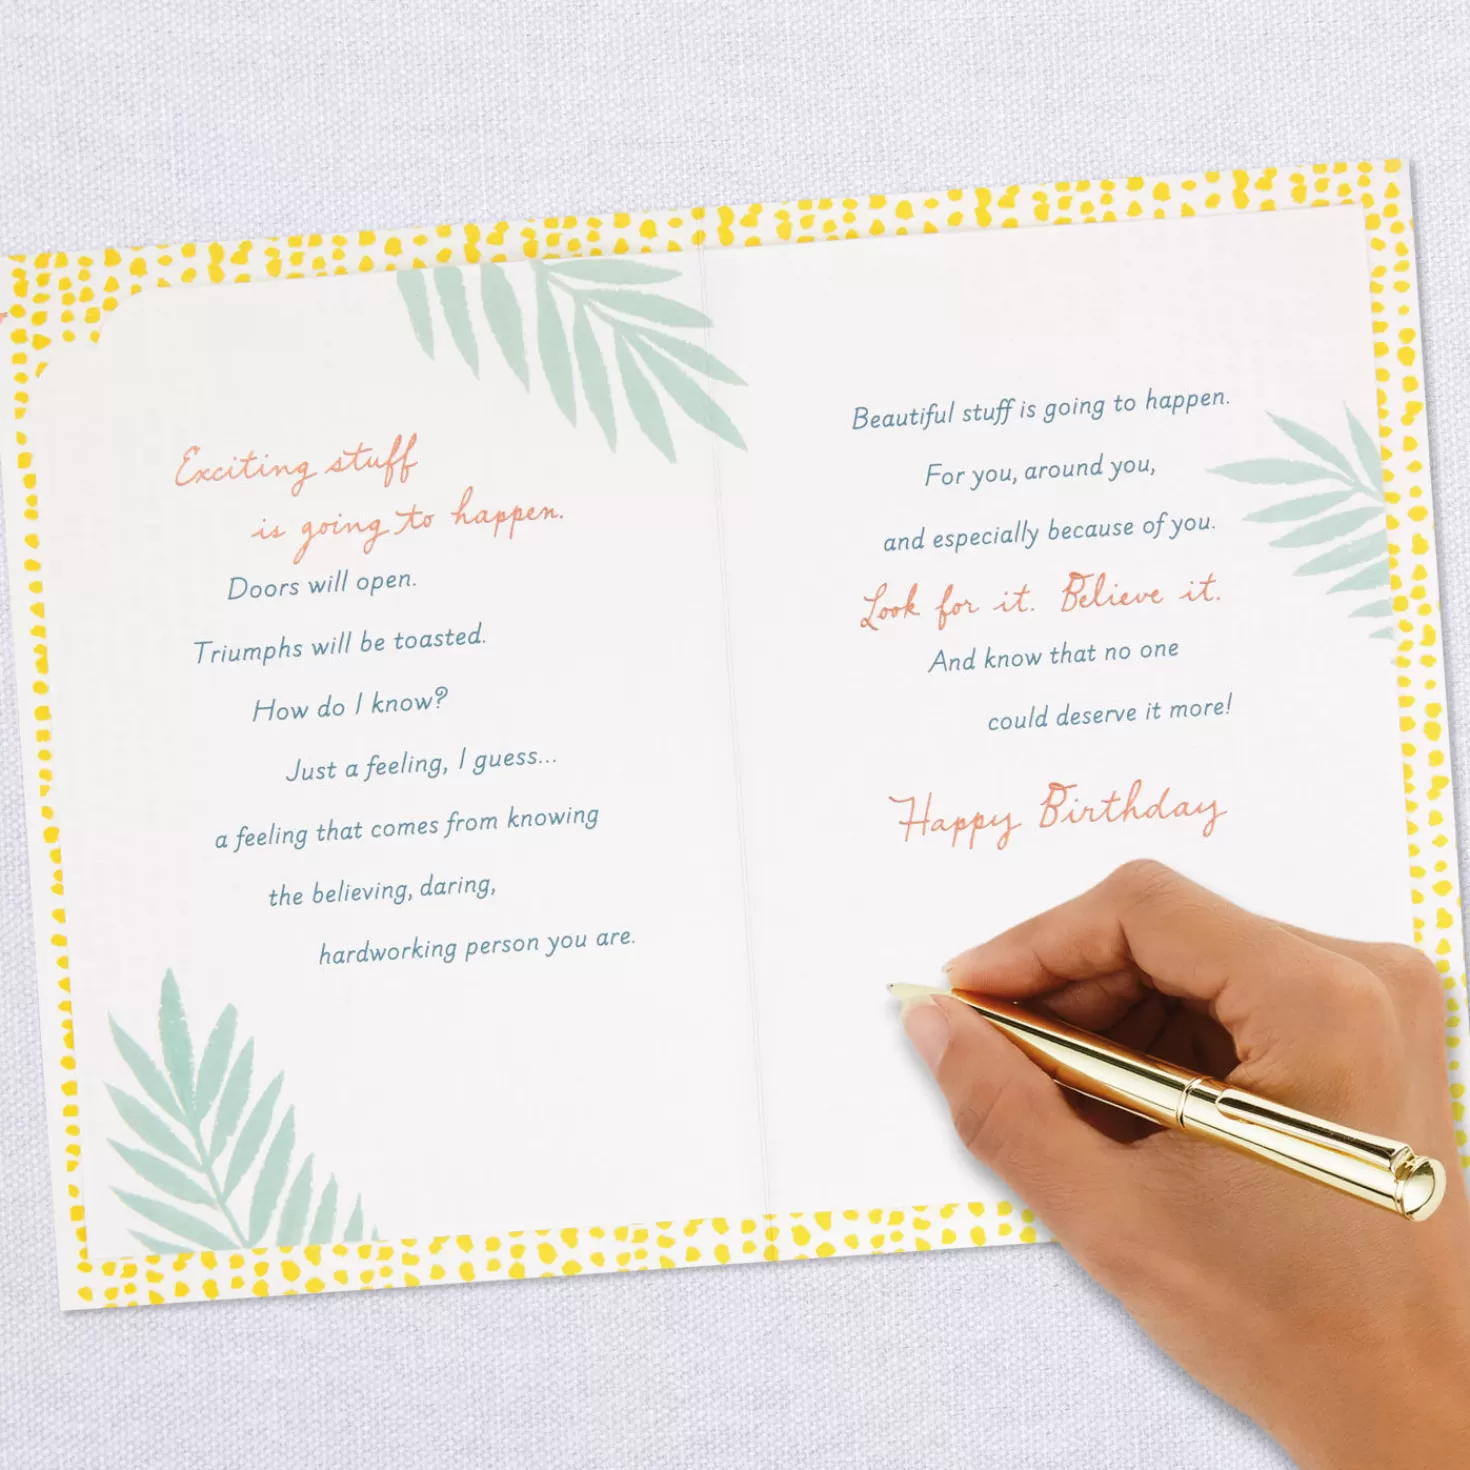 Exciting stuff
is going to happen.
Doors will open.
Triumphs will be toasted.
How do I know?
Just a feeling, I guess...
a feeling that comes from knowing
the believing, daring,
hardworking person you are.
Beautiful stuff is going to happen.
For you, around you,
and especially because of you.
Look for it. Believe it.
And know that no one
could deserve it more!
Happy Birthday